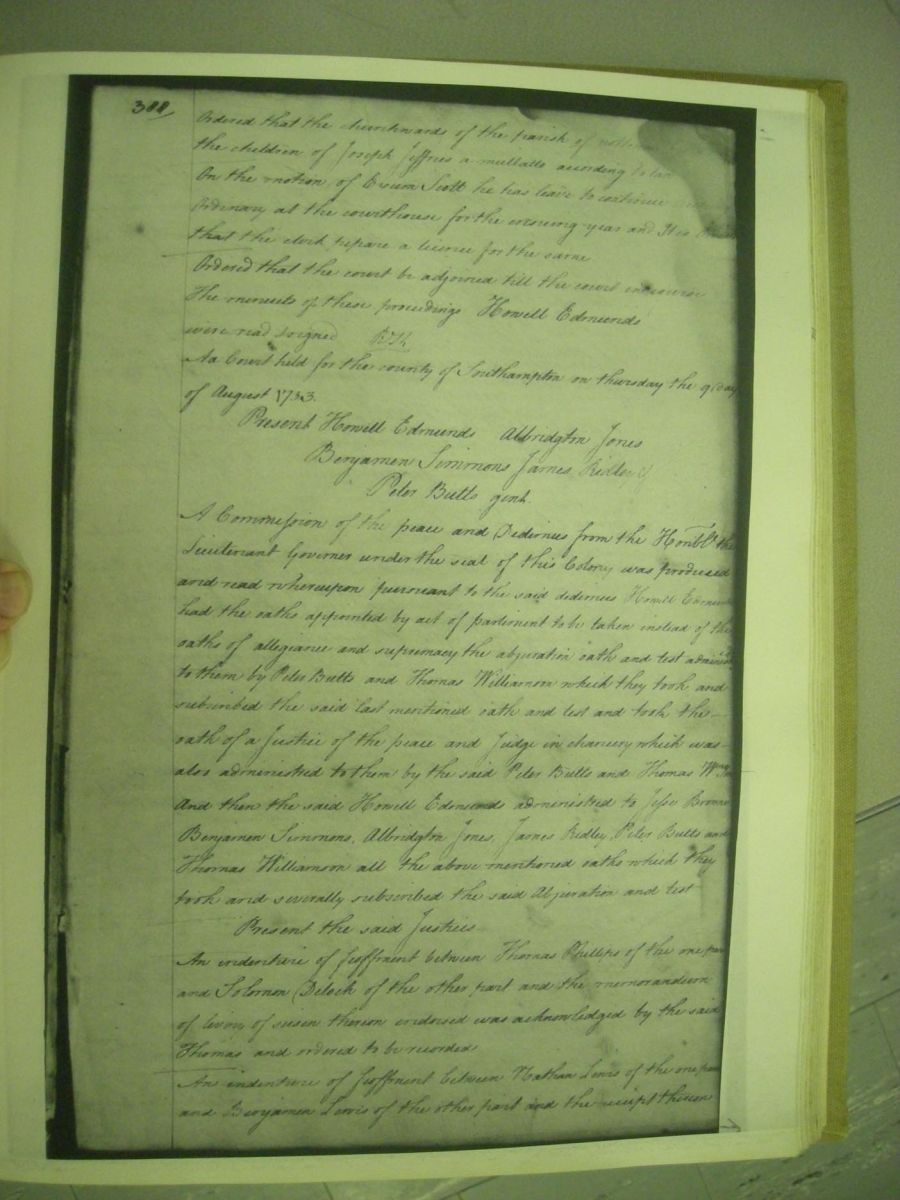 388
Ordered that the churchwards of the parish of
the children of Joseph Jeffries a mullatto according to law
On the motion of Exum Scott he has leave to continue
Ordinary at the courthouse for the ensueing year and It is
that the clerk prepare a licence for the same
Ordered that the court be adjorned till the court in course
The minuets of these proceedings Howell Edmunds
were read & signed
At a Court held for the county of Southampton on thursday the 9 day
of August 1753.
Present Howell Edmunds Albridgton Jones
Benjamen Simmons James Ridley
Peter Butts gent.
A Commission of the peace and Dedimus from the Honble. the
Lieutenant Governer under the seal of this Colony was produced
and read whereupon pursuant to the said dedimus Howell Edmunds
had the oaths appointed by act of parliment to be taken instead of the
oaths of allegiance and supremacy the abjuration oath and test
to them by Peter Butts and Thomas Williamson which they took and
subscribed the said last mentioned oath and test and took the
oath of a Justice of the peace and Judge in chancery which was
also administred to them by the said Peter Butts and Thomas
And then the said Howell Edmunds administred to Jesse Browne
Benjamen Simmons, Albridgton Jones, James Ridley, Peter Butts and
Thomas Williamson all the above mentioned oaths which they
took and severally subscribed the said Abjuration and test
Present the said Justices
An indenture of feoffment between Thomas Phillips of the one part
and Solomon Deloch of the other part and the memorandum
of livery of seisin thereon endorsed was acknowledged by the said
Thomas and ordered to be recorded
An indenture of feoffment between Nathan Lewis of the one part
and Benjamen Lewis of the other part and the receipt thereon